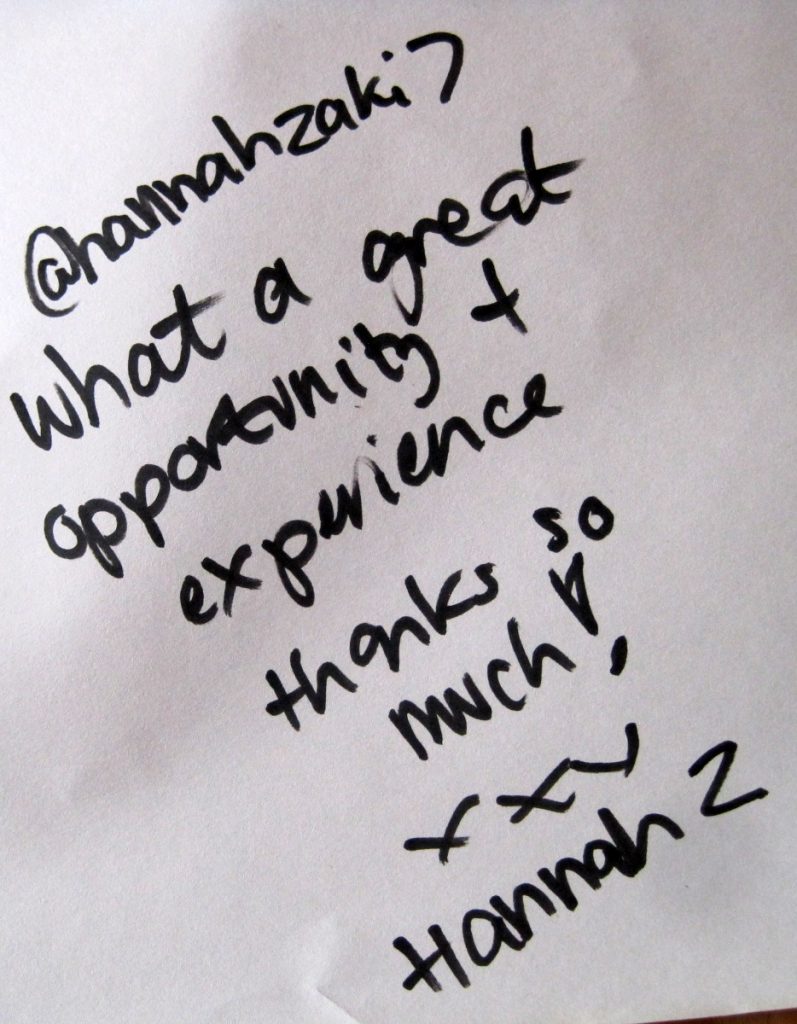 @hannahzaki7
What a great
opportunity +
experience
thanks so
much!
xxx
Hannah Z